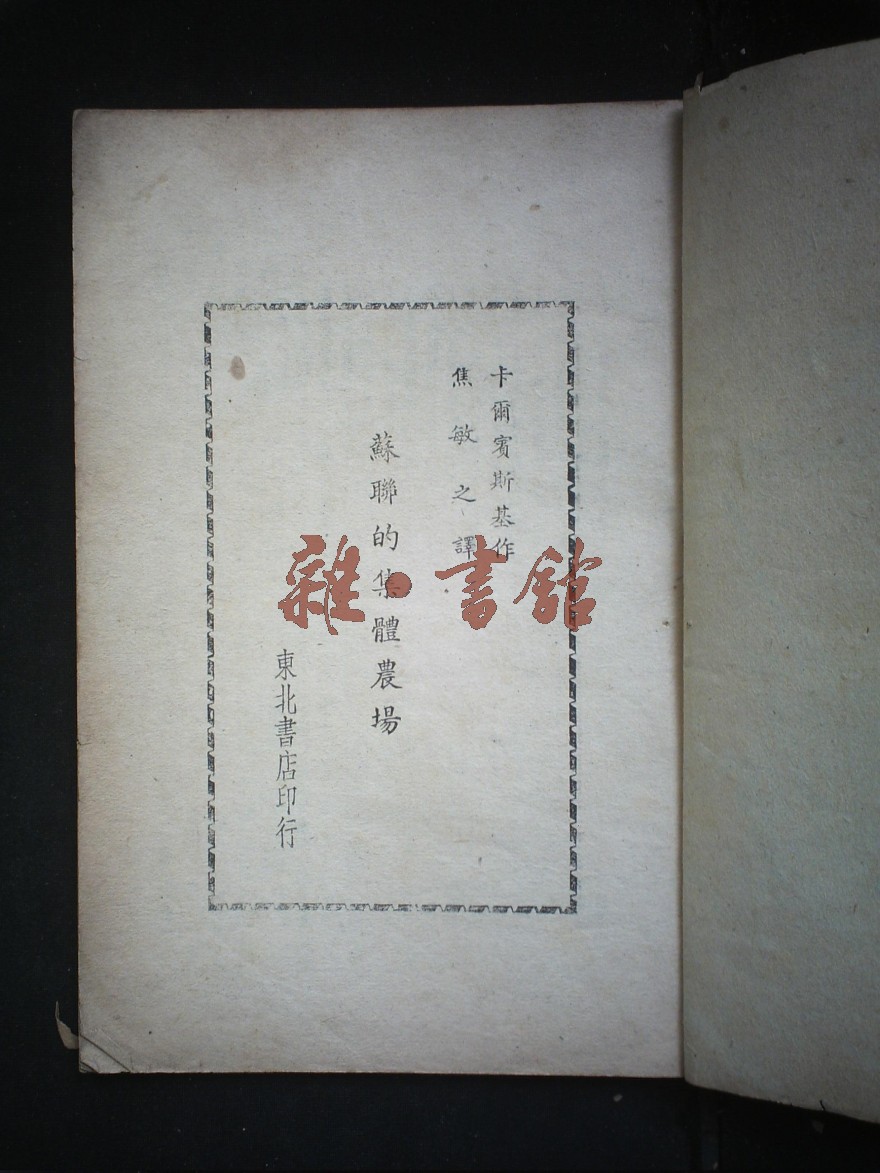 卡爾賓斯基作
焦敏之譯
蘇聯的集體農場
東北書店印行
雜·書館